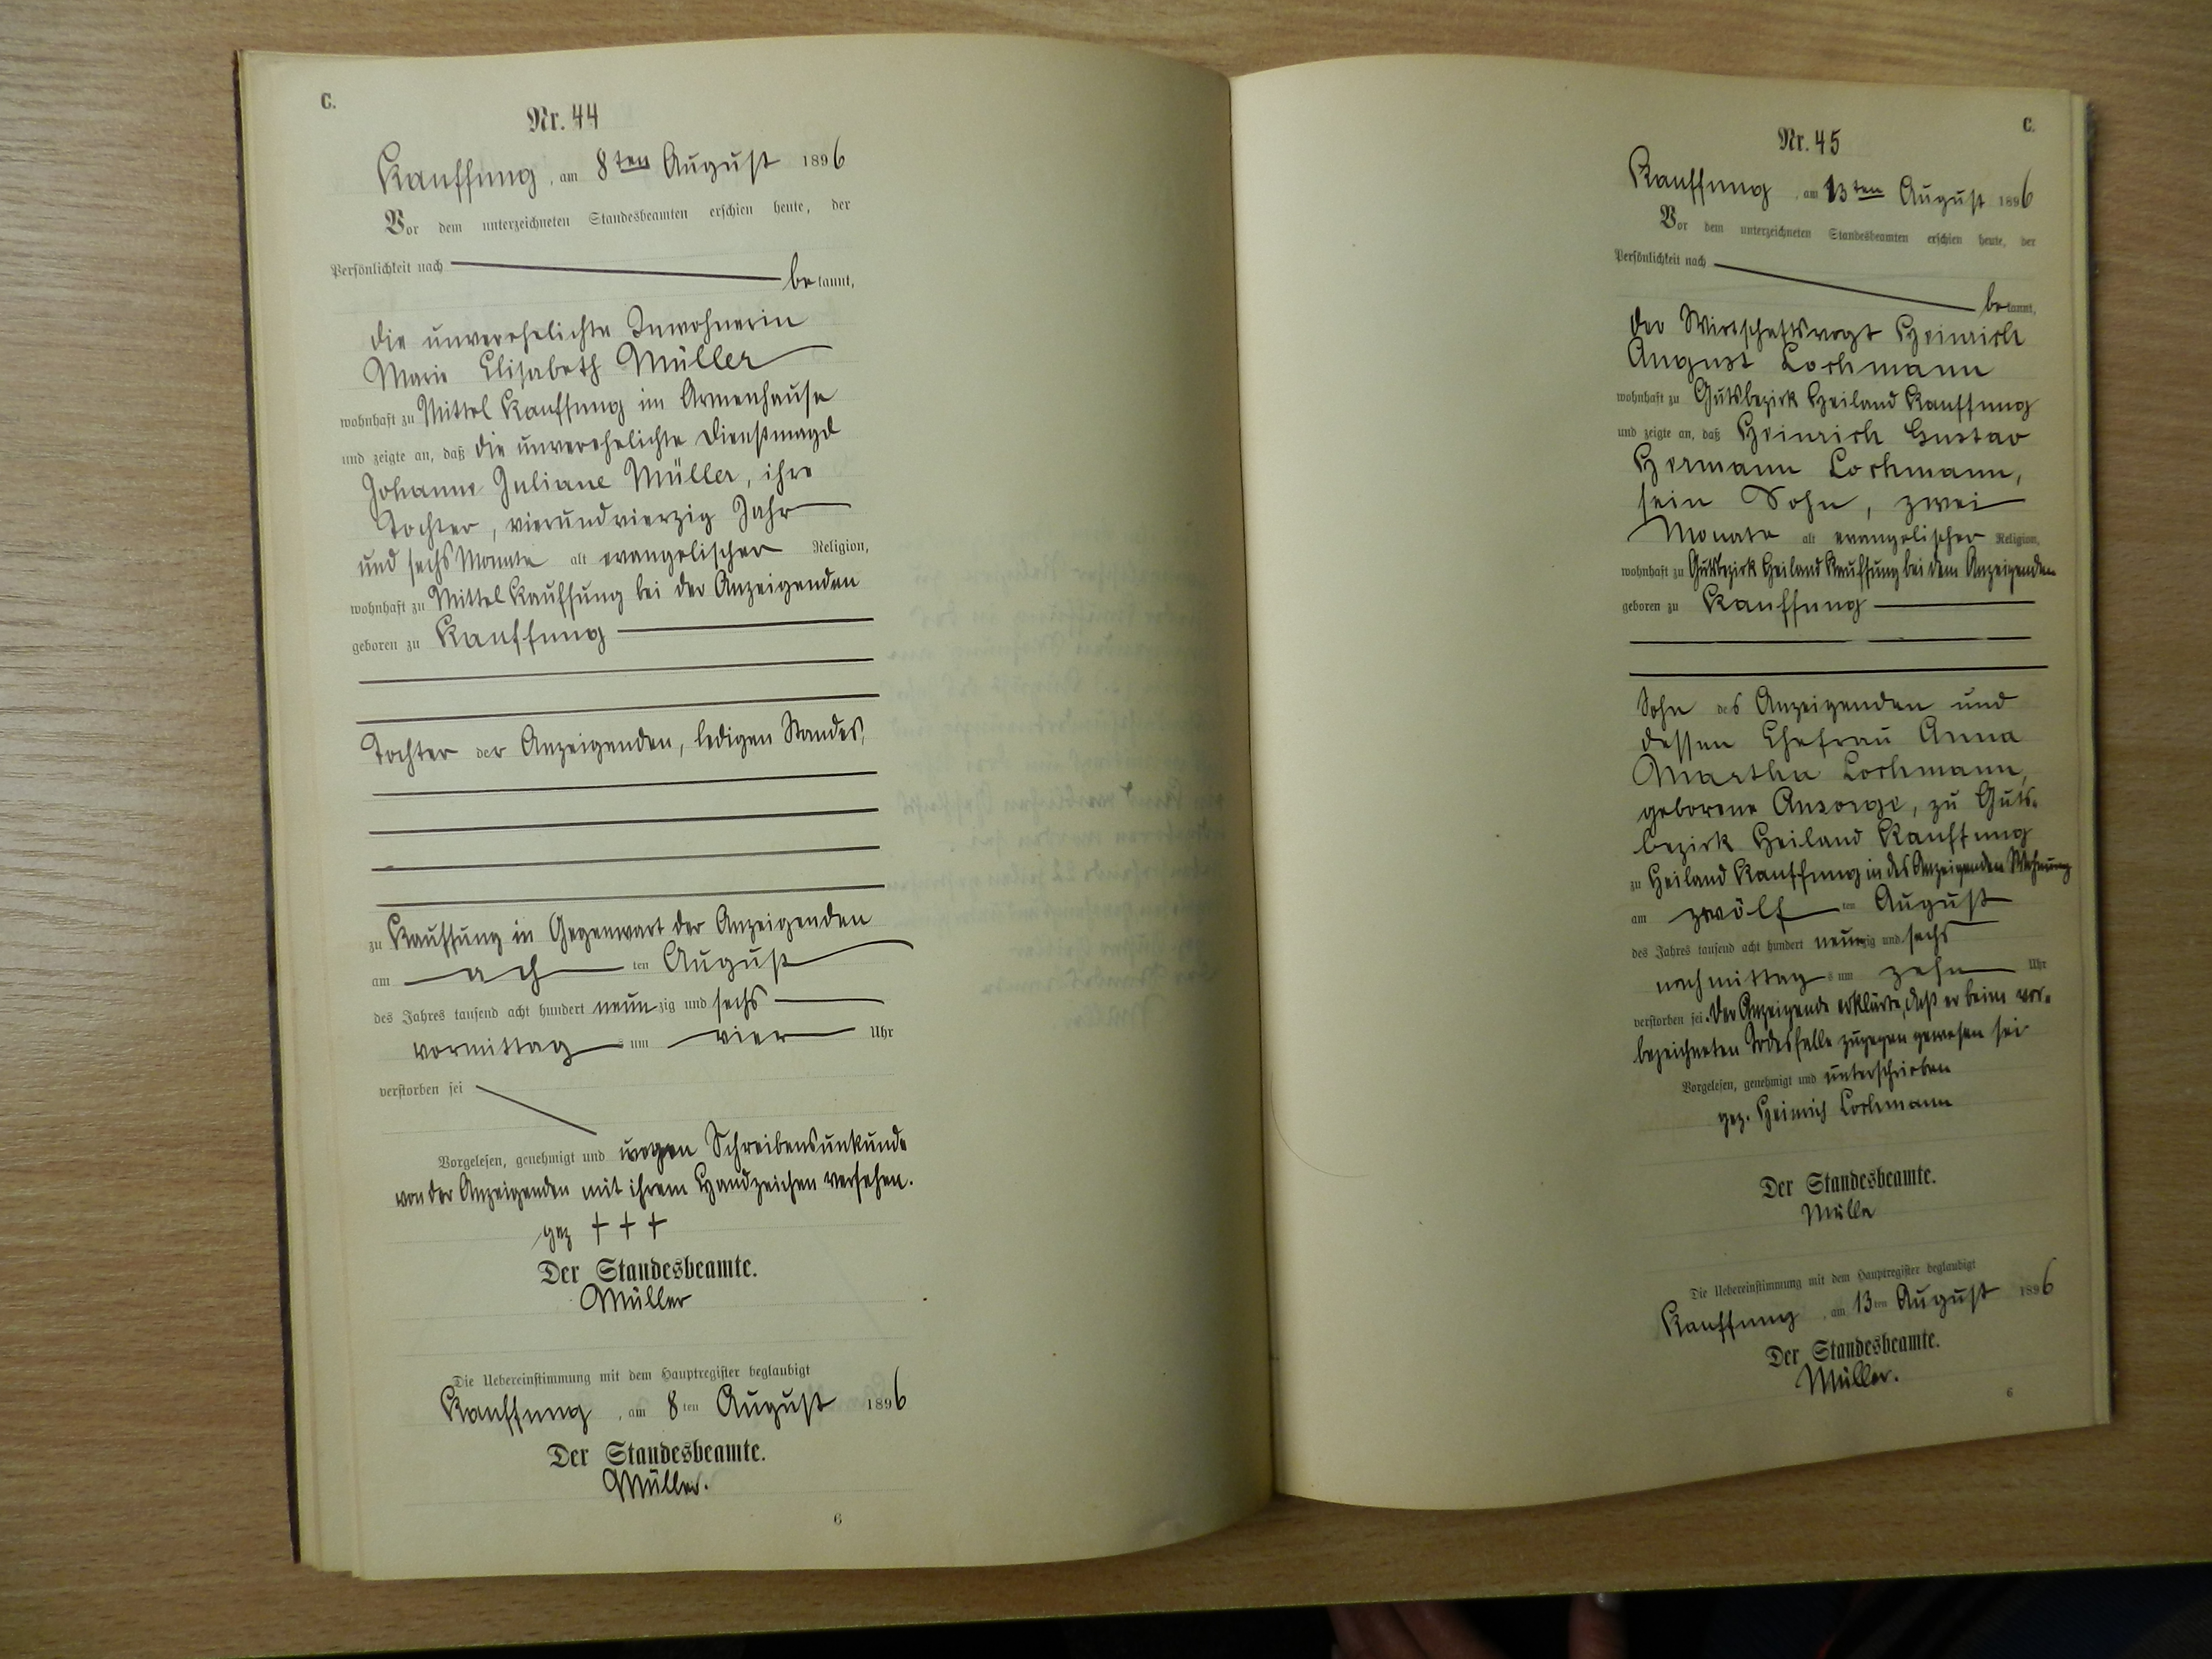 C.
Nr. 44
Kauffung, am 8ten August 1896
Vor dem unterzeichneten Standesbeamten erschien heute, der
Persönlichkeit nach bekannt,
die unverehelichte Inwohnerin
Marie Elisabeth Müller
wohnhaft zu Mittel Kauffung im Armenhause
und zeigte an, daß die unverehelichte Dienstmagd
Johanne Juliane Müller, ihre
Tochter, vierundvierzig Jahr
und sechs Monate alt evangelischer Religion,
wohnhaft zu Mittel Kauffung bei der Anzeigenden
geboren zu Kauffung
Tochter der Anzeigenden, ledigen Standes,
zu Kauffung in Gegenwart der Anzeigenden
am ach ten August
des Jahres tausend acht hundert neunzig und sechs
vormittags um vier Uhr
verstorben sei
Vorgelesen, genehmigt und wegen Schreibensunkunde
von der Anzeigenden mit ihrem Handzeichen versehen.
gez + + +
Der Standesbeamte.
Müller
Die Uebereinstimmung mit dem Hauptregister beglaubigt
Kauffung, am 8ten August 1896
Der Standesbeamte.
Müller.
6
C.
Nr. 45
Kauffung, am 13ten August 1896
Vor dem unterzeichneten Standesbeamten erschien heute, der
Persönlichkeit nach bekannt,
der Wirtschaftsvogt Heinrich
August Lochmann
wohnhaft zu Gutsbezirk Heiland Kauffung
und zeigte an, daß Heinrich Gustav
Hermann Lochmann,
sein Sohn, zwei
Monate alt evangelischer Religion,
wohnhaft zu Gutsbezirk Heiland Kauffung bei dem Anzeigenden
geboren zu Kauffung
Sohn des Anzeigenden und
dessen Ehefrau Anna
Martha Lochmann,
geborene Ansorge, zu Guts-
bezirk Heiland Kauffung
zu Heiland Kauffung in des Anzeigenden Wohnung
am zwölf ten August
des Jahres tausend acht hundert neunzig und sechs
nachmittags um zehn Uhr
verstorben sei. Der Anzeigende erklärte, daß er beim vor-
bezeichneten Todesfalle zugegen gewesen sei
Vorgelesen, genehmigt und unterschrieben
gez. Heinrich Lochmann
Der Standesbeamte.
Müller
Die Uebereinstimmung mit dem Hauptregister beglaubigt
Kauffung, am 13ten August 1896
Der Standesbeamte.
Müller.
6